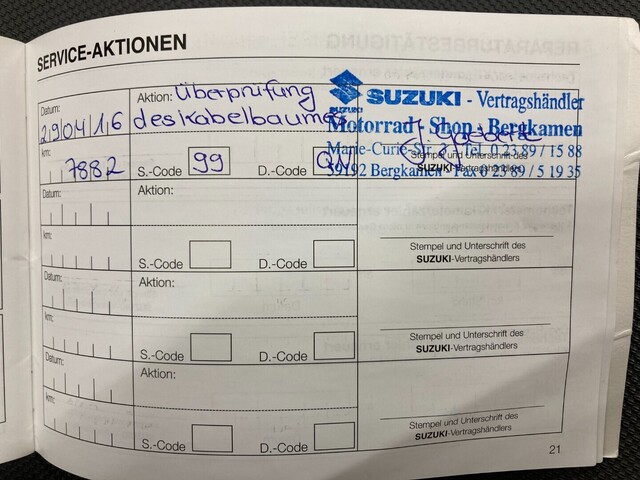 SERVICE-AKTIONEN
Datum:
29/04/16
Aktion: Überprüfung
des Kabelbaumes
SUZUKI - Vertragshändler
Motorrad - Shop - Bergkamen
Marie-Curie-Str. 3 / Tel. 0 23 89 / 15 88
59192 Bergkamen · Fax 0 23 89 / 5 19 35
Stempel und Unterschrift des
SUZUKI-Vertragshändlers
km:
7882
S.-Code 99 D.-Code QN
Datum:
Aktion:
km:
S.-Code D.-Code
Stempel und Unterschrift des
SUZUKI-Vertragshändlers
Datum:
Aktion:
km:
S.-Code D.-Code
Stempel und Unterschrift des
SUZUKI-Vertragshändlers
Datum:
Aktion:
km:
S.-Code D.-Code
Stempel und Unterschrift des
SUZUKI-Vertragshändlers
21